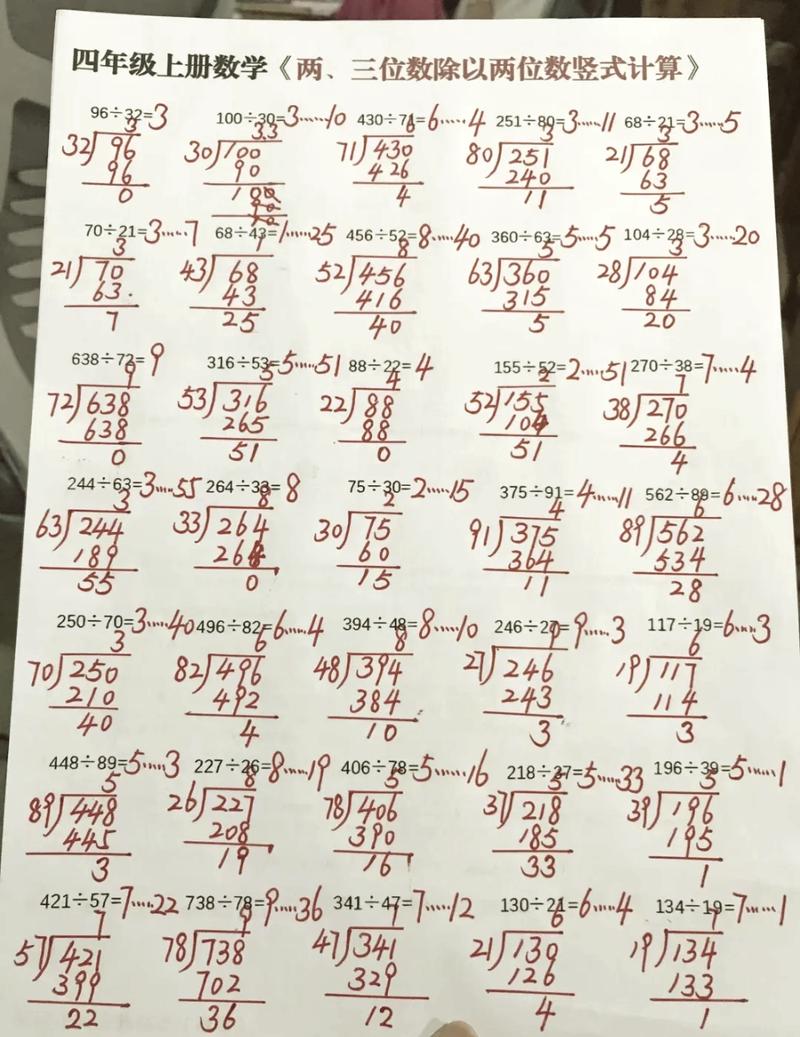 四年级上册数学《两、三位数除以两位数竖式计算》
96÷32=3 100÷30=3……10 430÷71=6……4 251÷80=3……11 68÷21=3……5
3 33 6 3 3
32 96 30 100 71 430 80 251 21 68
96 90 426 240 63
0 100 4 11 5
70÷21=3……7 68÷43=1……25 456÷52=8……40 360÷63=5……5 104÷28=3……20
3 1 8 5 3
21 70 43 68 52 456 63 360 28 104
63 43 416 315 84
7 25 40 5 20
638÷72=9 316÷53=5……51 88÷22=4 155÷52=2……51 270÷38=7……4
9 5 4 2 7
72 638 53 316 22 88 52 155 38 270
638 265 88 104 266
0 51 0 51 4
244÷63=3……55 264÷33=8 75÷30=2……15 375÷91=4……11 562÷89=6……28
3 8 2 4 6
63 244 33 264 30 75 91 375 89 562
189 264 60 364 534
55 0 15 11 28
250÷70=3……40 496÷82=6……4 394÷48=8……10 246÷27=9……3 117÷19=6……3
3 6 8 9 6
70 250 82 496 48 394 27 246 19 117
210 492 384 243 114
40 4 10 3 3
448÷89=5……3 227÷26=8……19 406÷78=5……16 218÷37=5……33 196÷39=5……1
5 8 5 5 5
89 448 26 227 78 406 37 218 39 196
445 208 390 185 195
3 19 16 33 1
421÷57=7……22 738÷78=9……36 341÷47=7……12 130÷21=6……4 134÷19=7……1
7 9 7 6 7
57 421 78 738 47 341 21 130 19 134
399 702 329 126 133
22 36 12 4 1